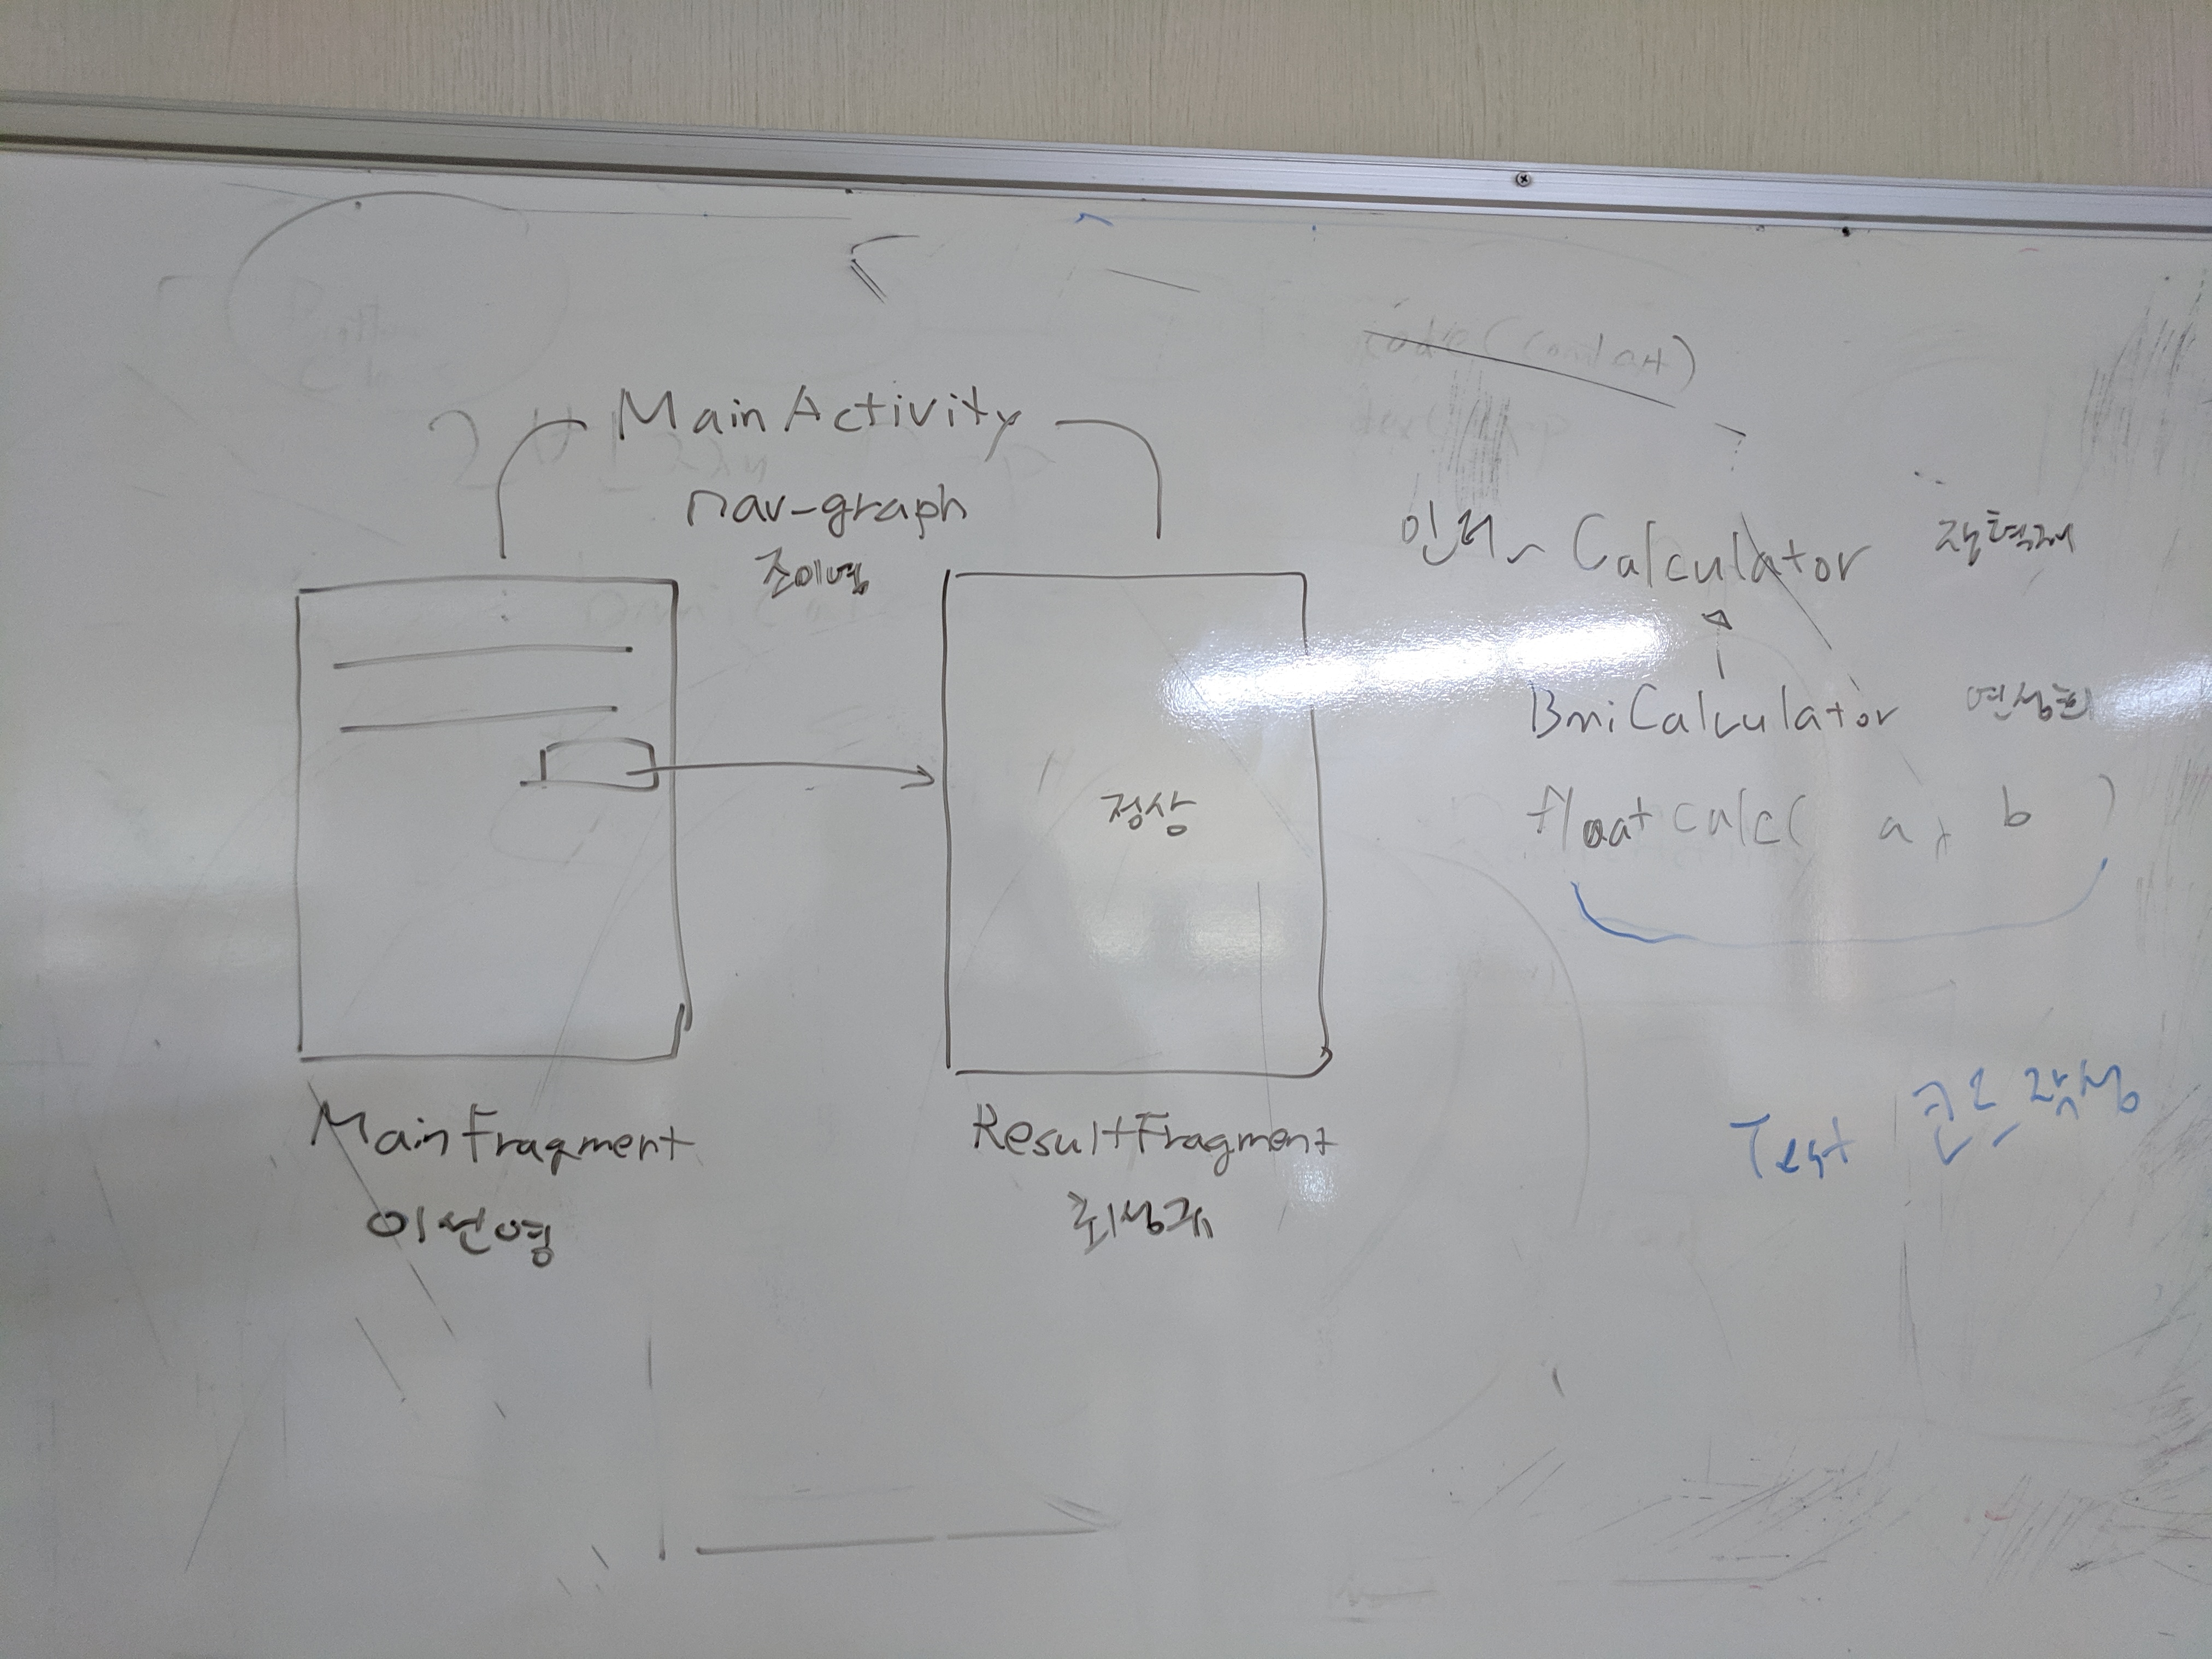 MainActivity
nav-graph
조이영
정상
MainFragment
이선영
ResultFragment
최성규
인터~ Calculator 장혁재
BmiCalculator 연성희
float calc( a, b )
Test 코드 작성